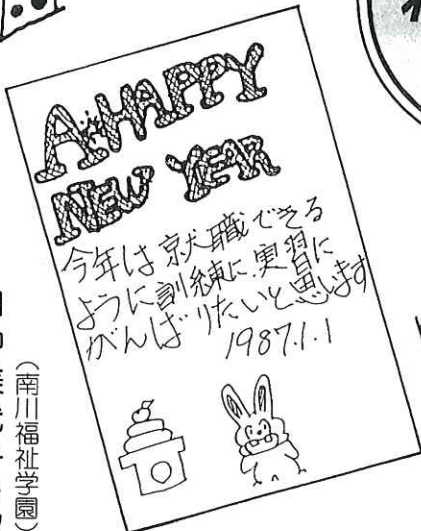 A HAPPY
NEW YEAR
今年は就職できる
ように訓練に実習に
がんばりたいと思います
1987.1.1
(南川福祉学園)